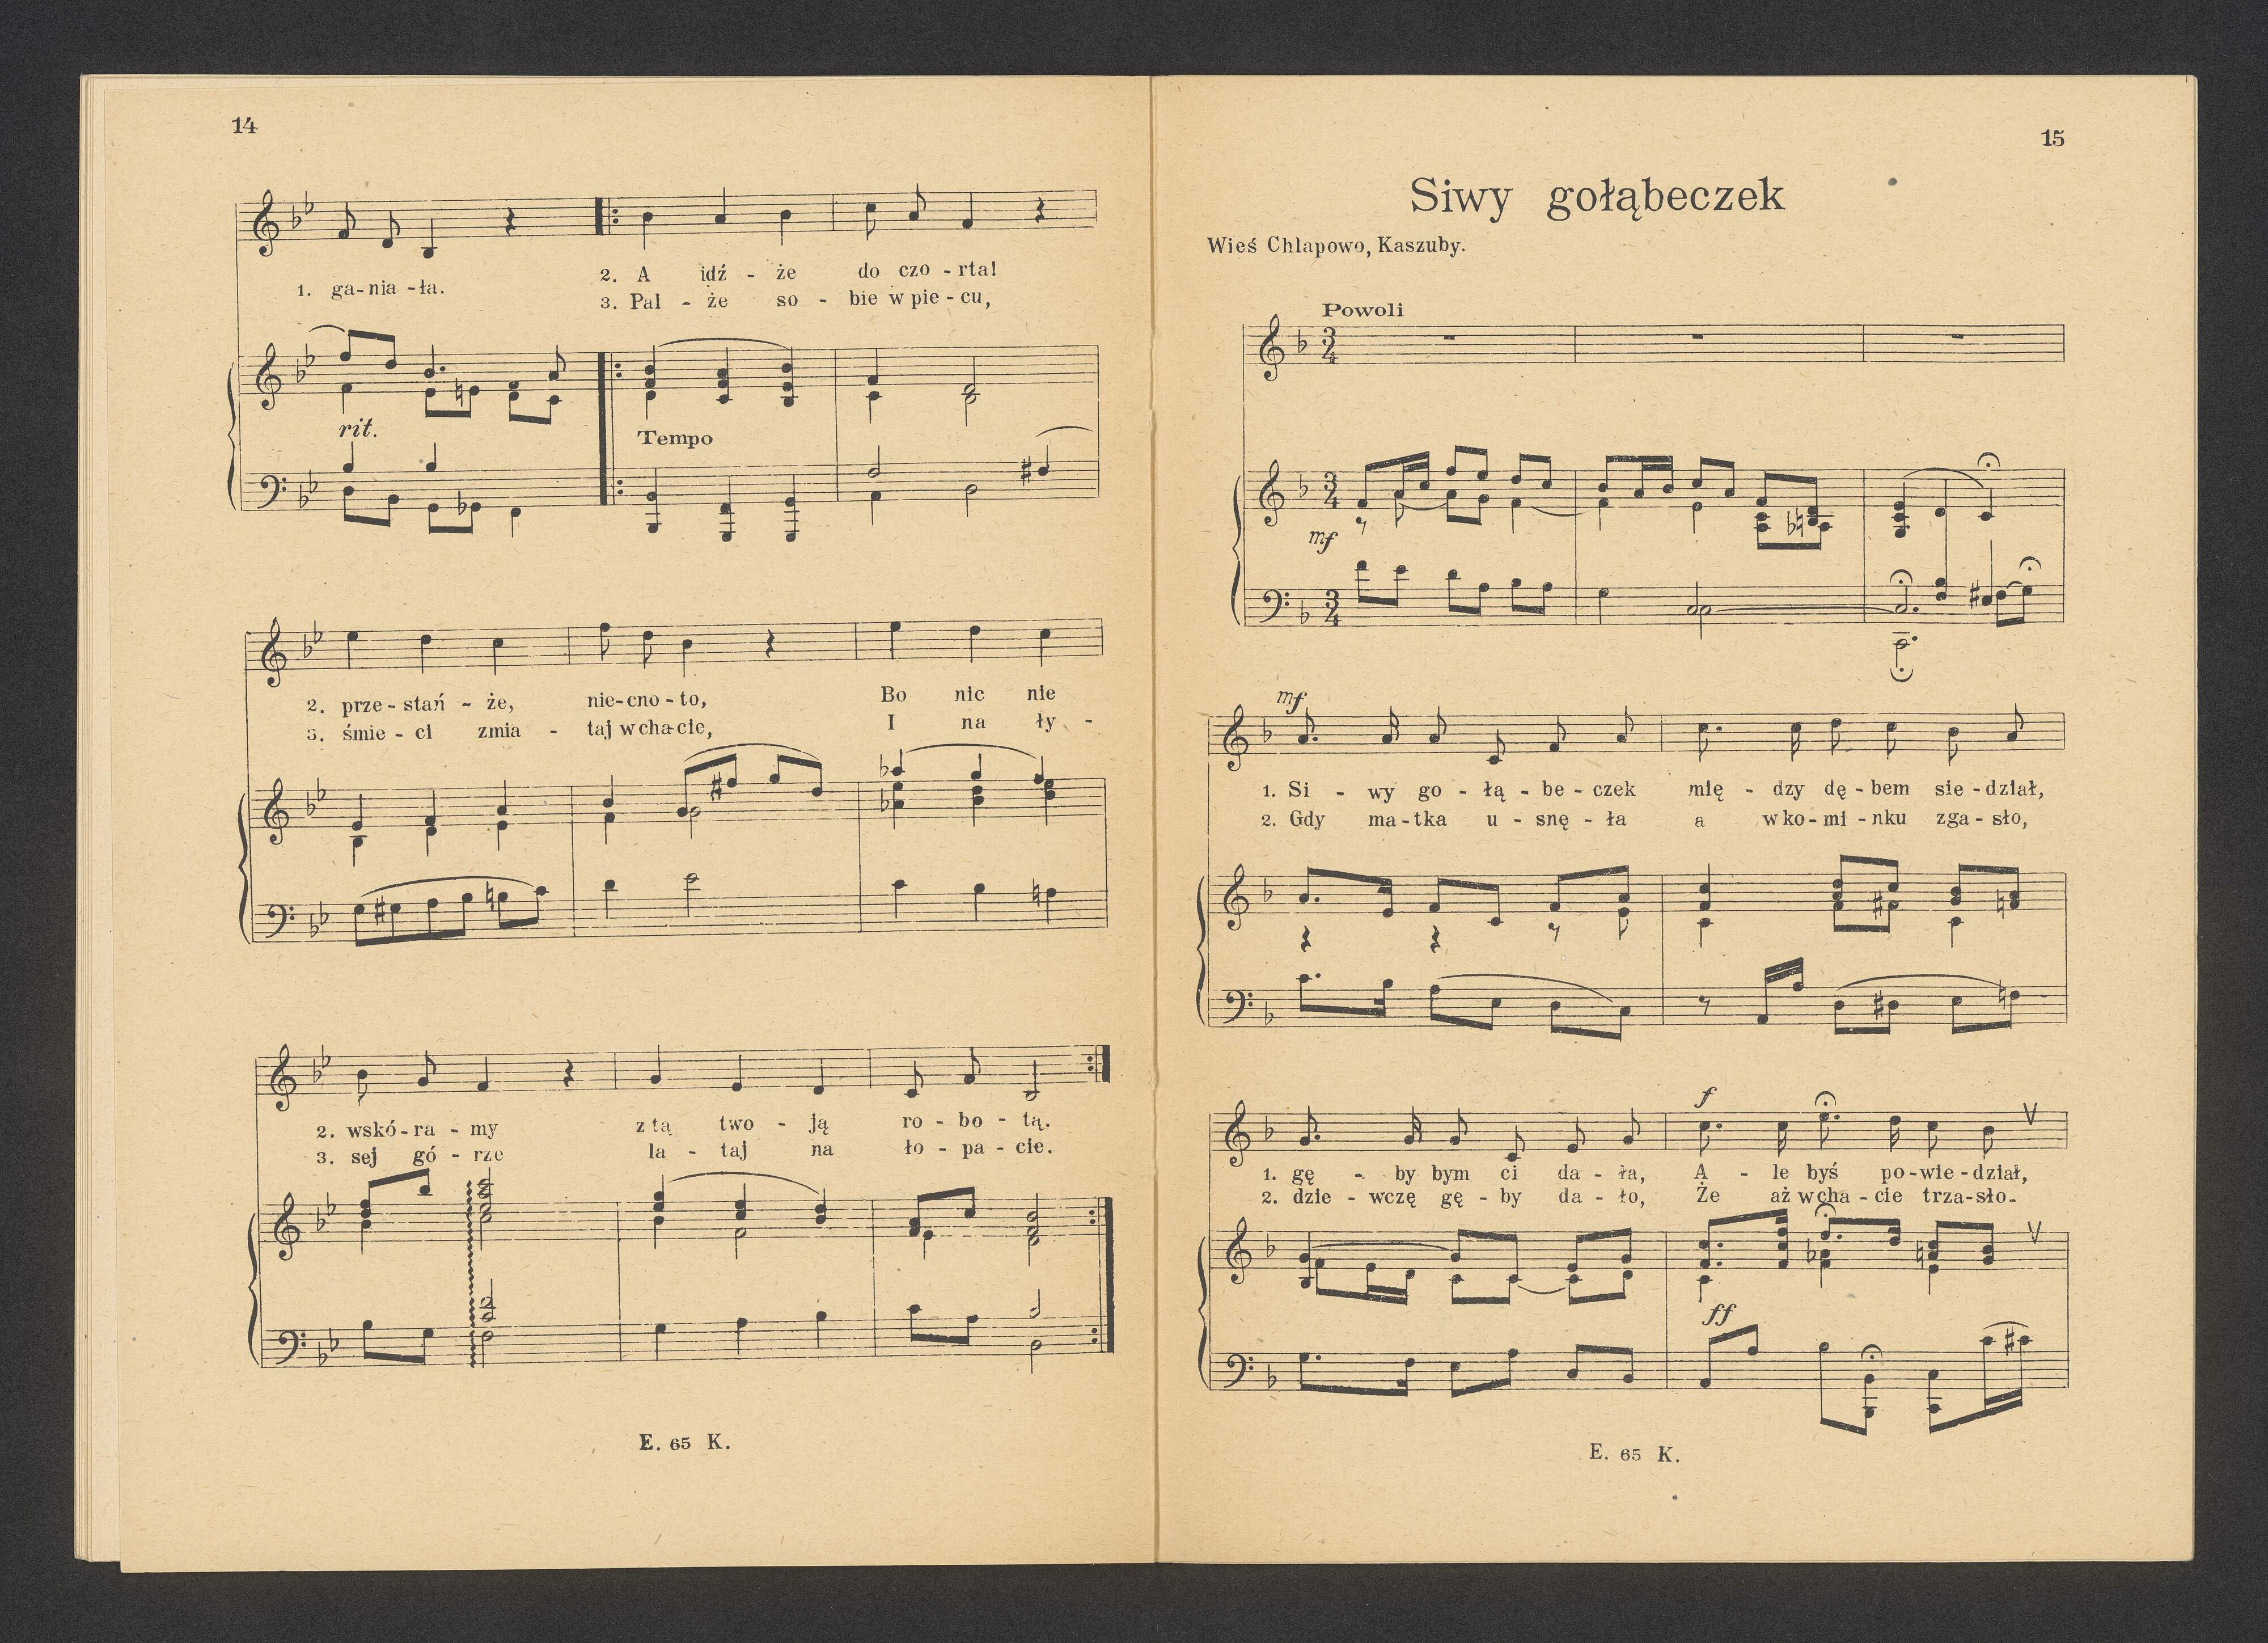 14
1. ga-nia-ła.
2. A idź - że do czo - rta!
3. Pal - że so - bie w pie - cu,
rit.
Tempo
2. prze - stań - że, nie-cno - to, Bo nic nie
3. śmie - ci zmia - taj w cha-cie, I na ły -
2. wskó - ra - my z tą two - ją ro - bo - tą.
3. sej gó - rze la - taj na ło - pa - cie.
E. 65 K.
15
Siwy gołąbeczek
Wieś Chlapowo, Kaszuby.
Powoli
mf
mf
1. Si - wy go - łą - be - czek mię - dzy dę - bem sie - dział,
2. Gdy ma - tka u - snę - ła a w ko - mi - nku zga - sło,
f
1. gę - by bym ci da - ła, A - le byś po - wie - dział,
2. dzie - wczę gę - by da - ło, Że aż w cha - cie trza - sło-
ff
E. 65 K.